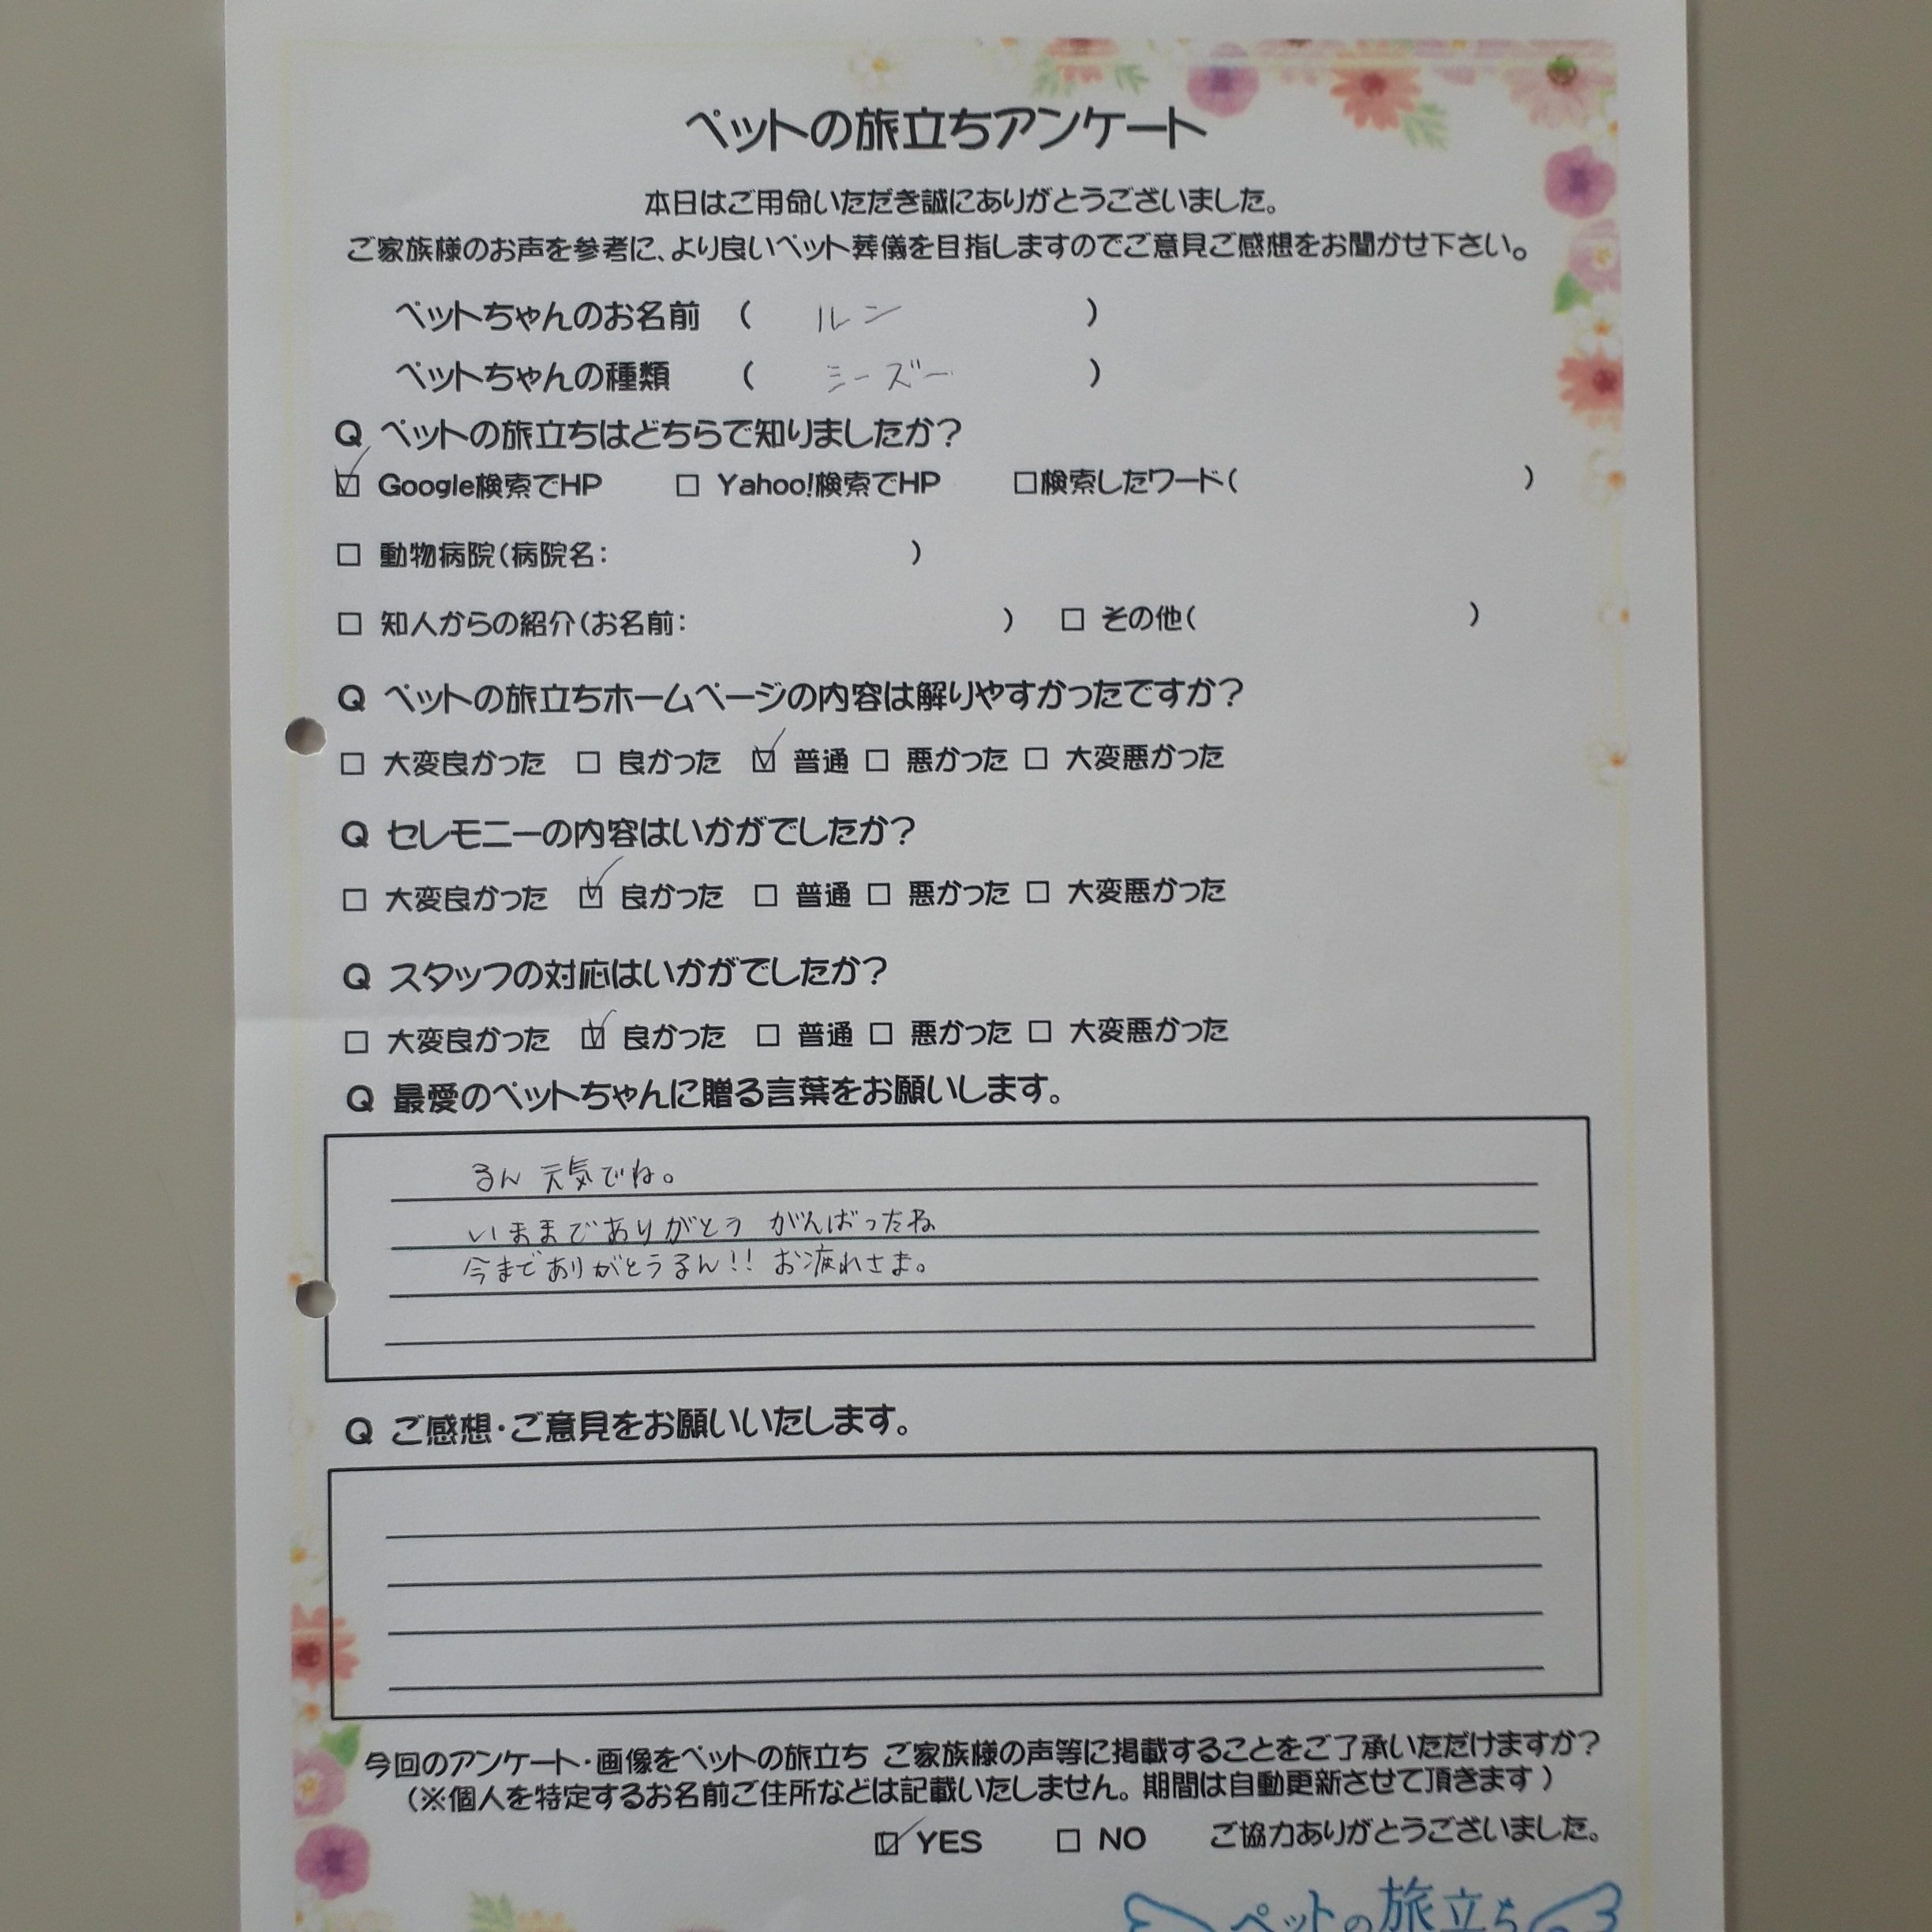 ペットの旅立ちアンケート
本日はご用命いただき誠にありがとうございました。
ご家族様のお声を参考に、より良いペット葬儀を目指しますのでご意見ご感想をお聞かせ下さい。
ペットちゃんのお名前 ( ルン )
ペットちゃんの種類 ( シーズー )
Q ペットの旅立ちはどちらで知りましたか?
☑ Google検索でHP □ Yahoo!検索でHP □検索したワード( )
□ 動物病院(病院名: )
□ 知人からの紹介(お名前: ) □ その他( )
Q ペットの旅立ちホームページの内容は解りやすかったですか?
□ 大変良かった □ 良かった ☑ 普通 □ 悪かった □ 大変悪かった
Q セレモニーの内容はいかがでしたか?
□ 大変良かった ☑ 良かった □ 普通 □ 悪かった □ 大変悪かった
Q スタッフの対応はいかがでしたか?
□ 大変良かった ☑ 良かった □ 普通 □ 悪かった □ 大変悪かった
Q 最愛のペットちゃんに贈る言葉をお願いします。
るん 元気でね。
いままでありがとう がんばったね
今までありがとうるん!! お疲れさま。
Q ご感想・ご意見をお願いいたします。
今回のアンケート・画像をペットの旅立ち ご家族様の声等に掲載することをご了承いただけますか?
(※個人を特定するお名前ご住所などは記載いたしません。期間は自動更新させて頂きます)
☑ YES □ NO ご協力ありがとうございました。
ペットの旅立ち